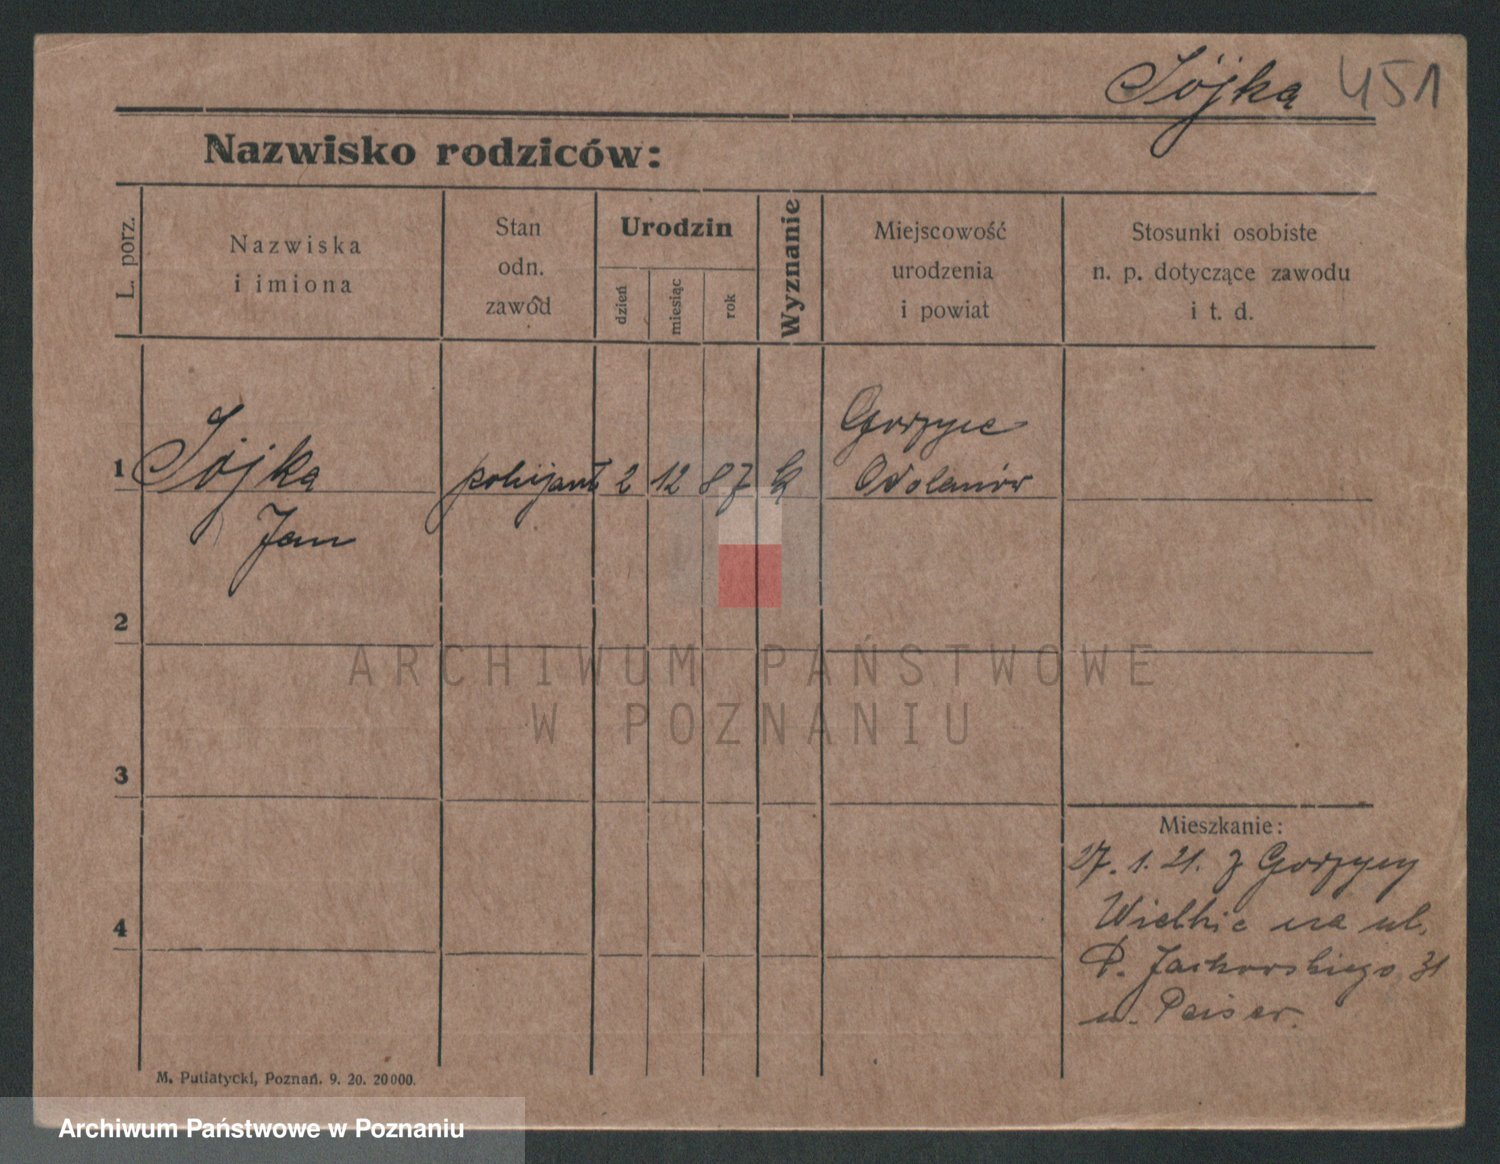 Sójka 451
Nazwisko rodziców:
L. porz.
Nazwiska
i imiona
Stan
odn.
zawód
Urodzin
dzień
miesiąc
rok
Wyznanie
Miejscowość
urodzenia
i powiat
Stosunki osobiste
n. p. dotyczące zawodu
i t. d.
1 Sójka policjant 2 12 87 k Gorzyce
Jan Odolanów
2
3
4
Mieszkanie:
27. 1. 21. z Gorzycy
Wielkie na ul.
P. Jackowskiego 31
u. Peiser.
M. Putiatycki, Poznań. 9. 20. 20000.
ARCHIWUM PAŃSTWOWE
W POZNANIU
Archiwum Państwowe w Poznaniu